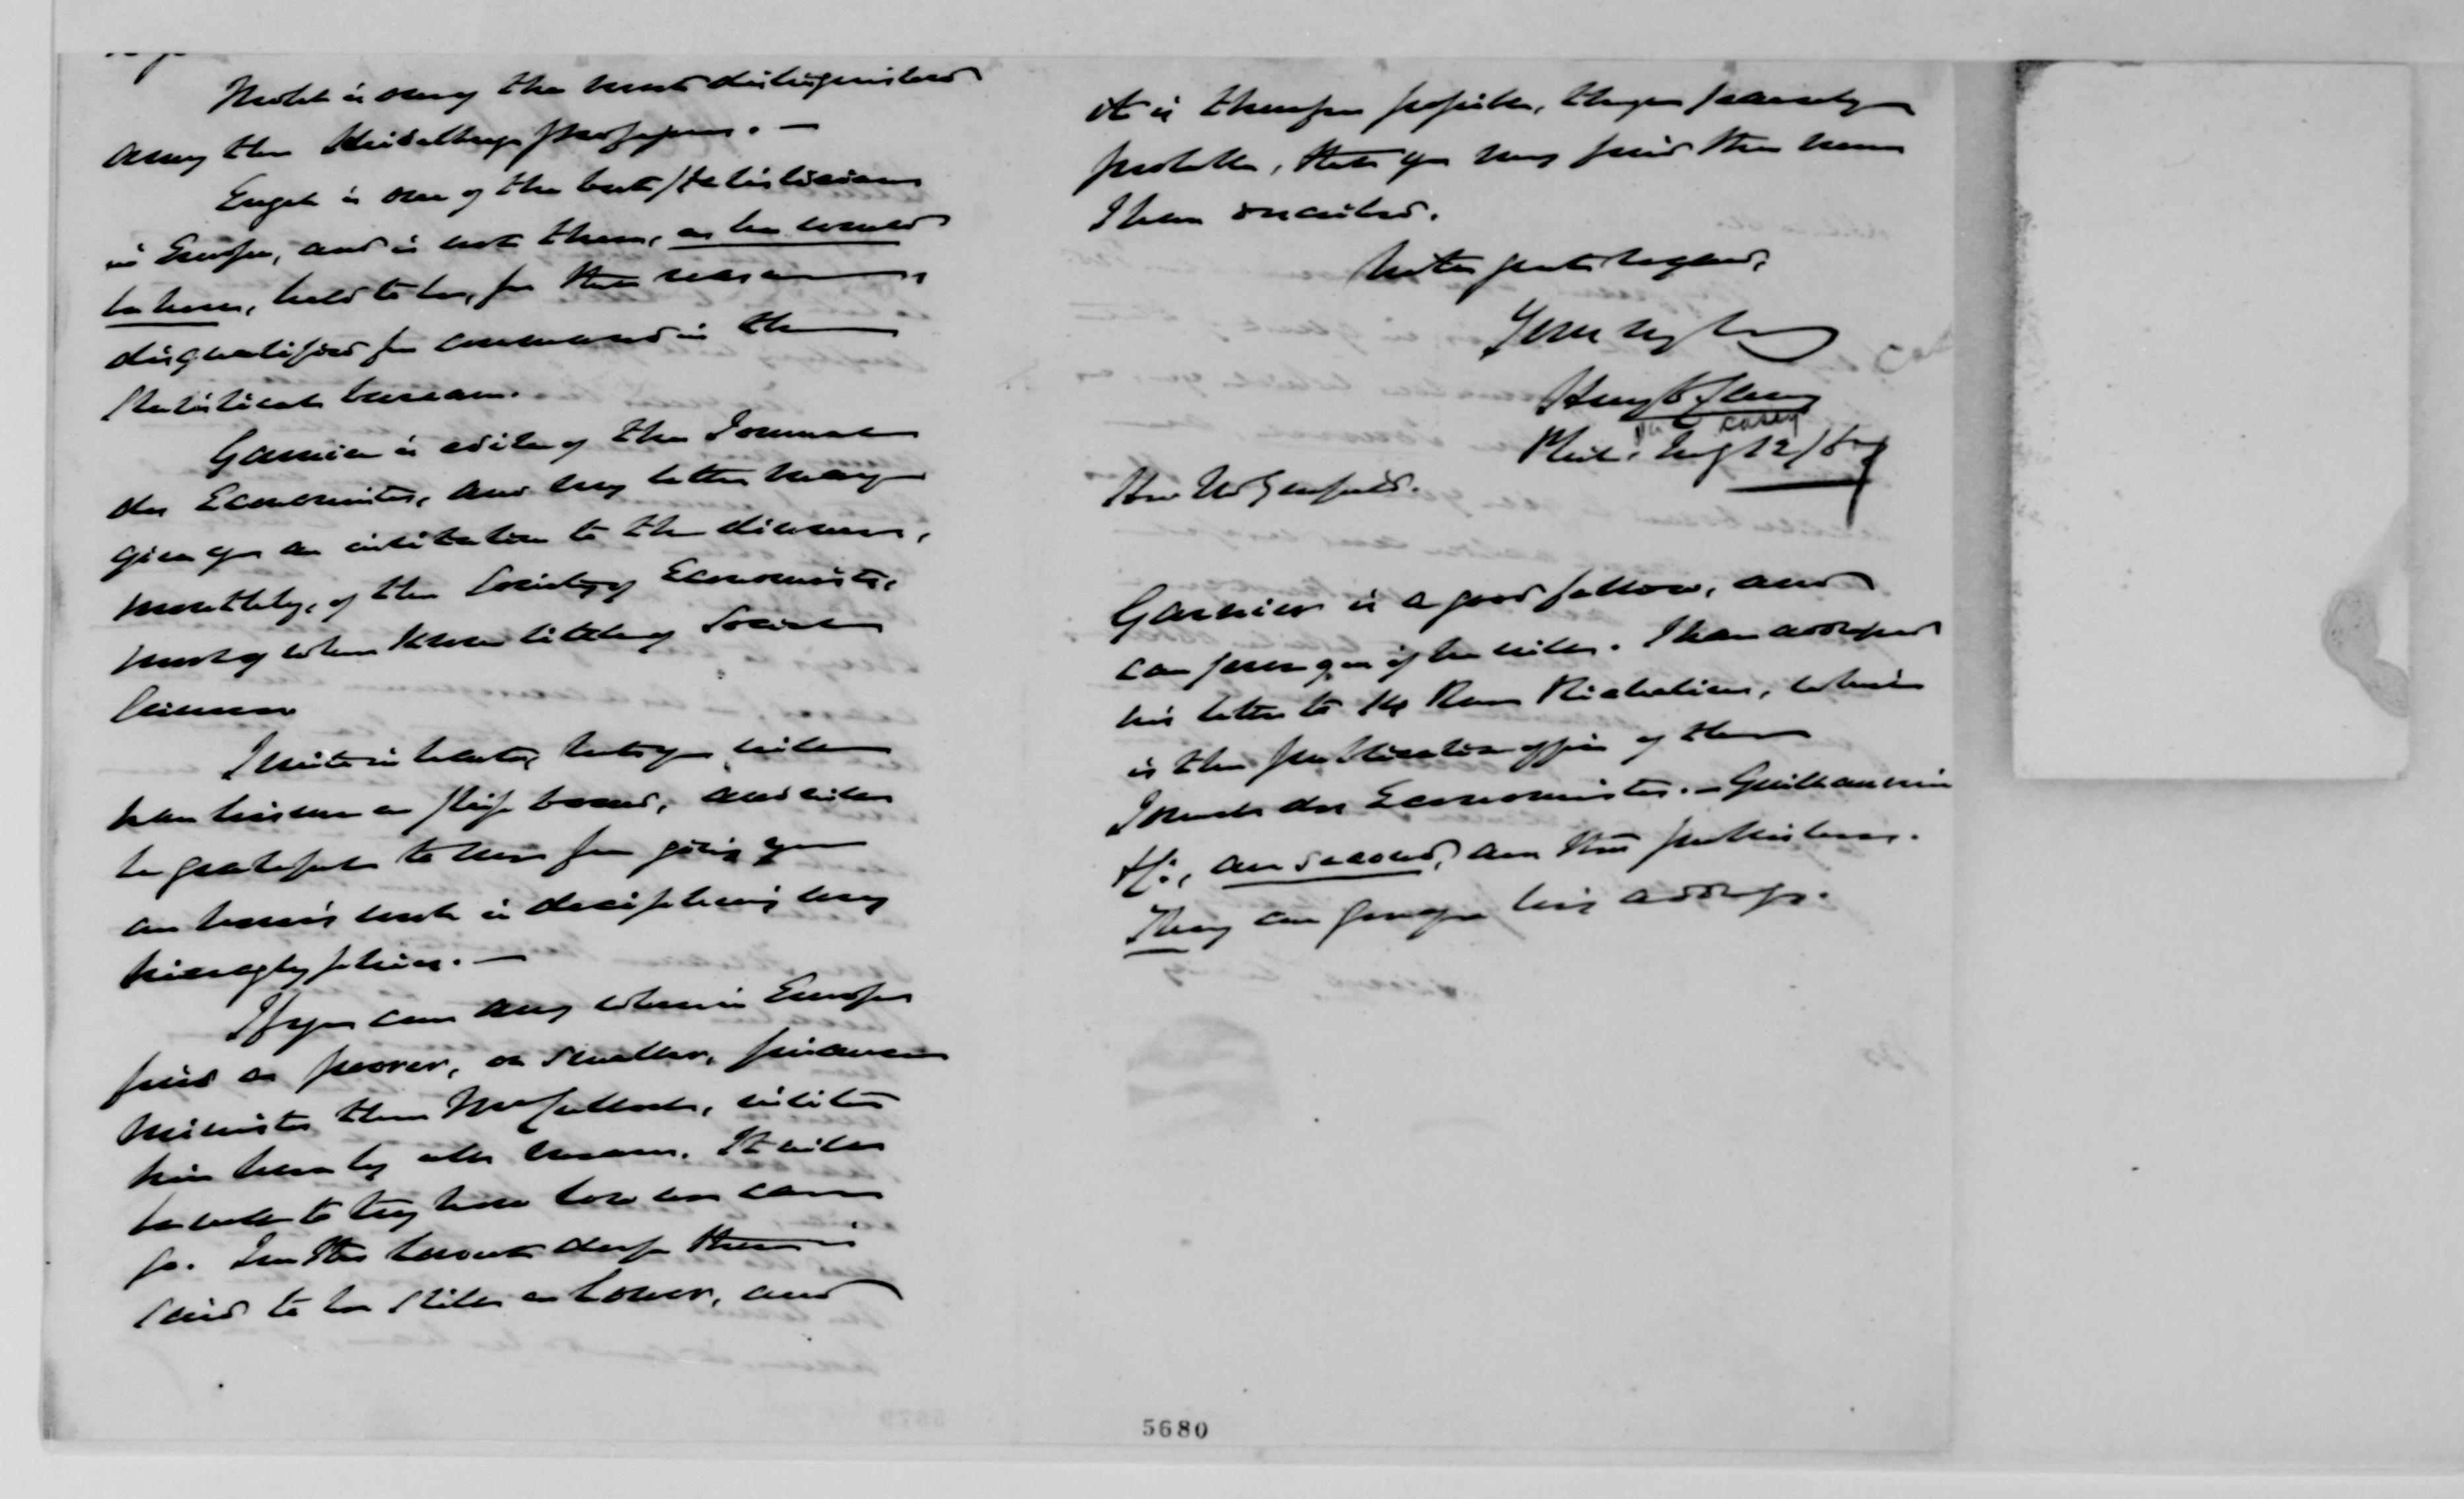 Mohl is among the most distinguished
among the Heidelberg professors. —
Engel is one of the best statisticians
in Europe, and is not there, as he would
be here, held to be, for that reason,
disqualified for command in the
Statistical bureau.
Garnier is editor of the Journal
des Economistes, and my letter may
give you an invitation to the dinners,
monthly, of the Society of Economists,
most of whom know little of Social
Science
I write in haste, but you will
have leisure on ship board, and will
be grateful to me for giving you
an hour's work in deciphering my
hieroglyphics. —
If you can any where in Europe
find a poorer, or smaller, finance
minister than McCulloch, invite
him here by all means. It will
be well to try how low we can
go. In the lowest deep there is
said to be still a lower, and
it is therefore possible, though scarcely
probable, that you may find the man
I have described.
With great regard,
Yours very truly
Henry C. Carey
Carey
Phila. Aug 12/67
Hon Mr Garfield.
Garnier is a good fellow, and
can serve you if he will. I have addressed
his letter to 14 Rue Richelieu, which
is the publication office of the
Journal des Economistes. — Guillaumin
& Co., au second, are the publishers.
They can give you his address.
5680